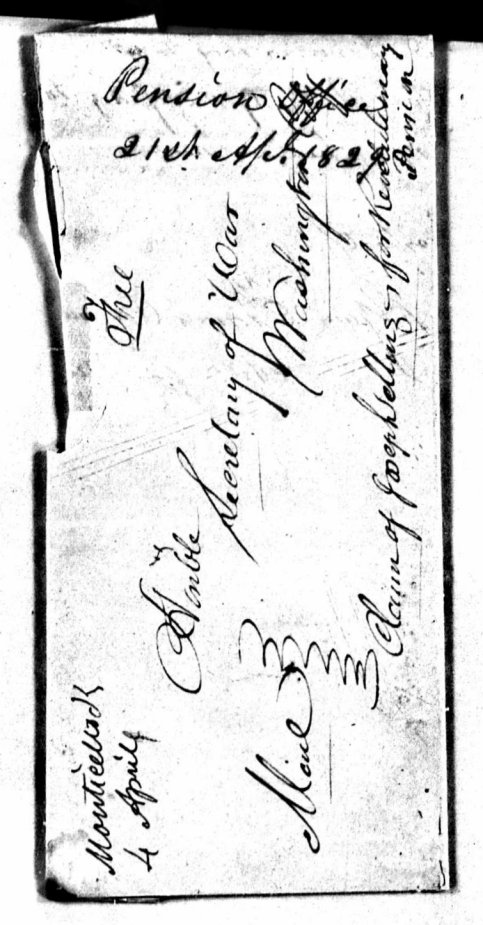 Pension Office
21st Ap. 182
Monticello
4 April
Free
Honble
Secretary of War
Washington
Mail
Claim of Joseph for
Pension